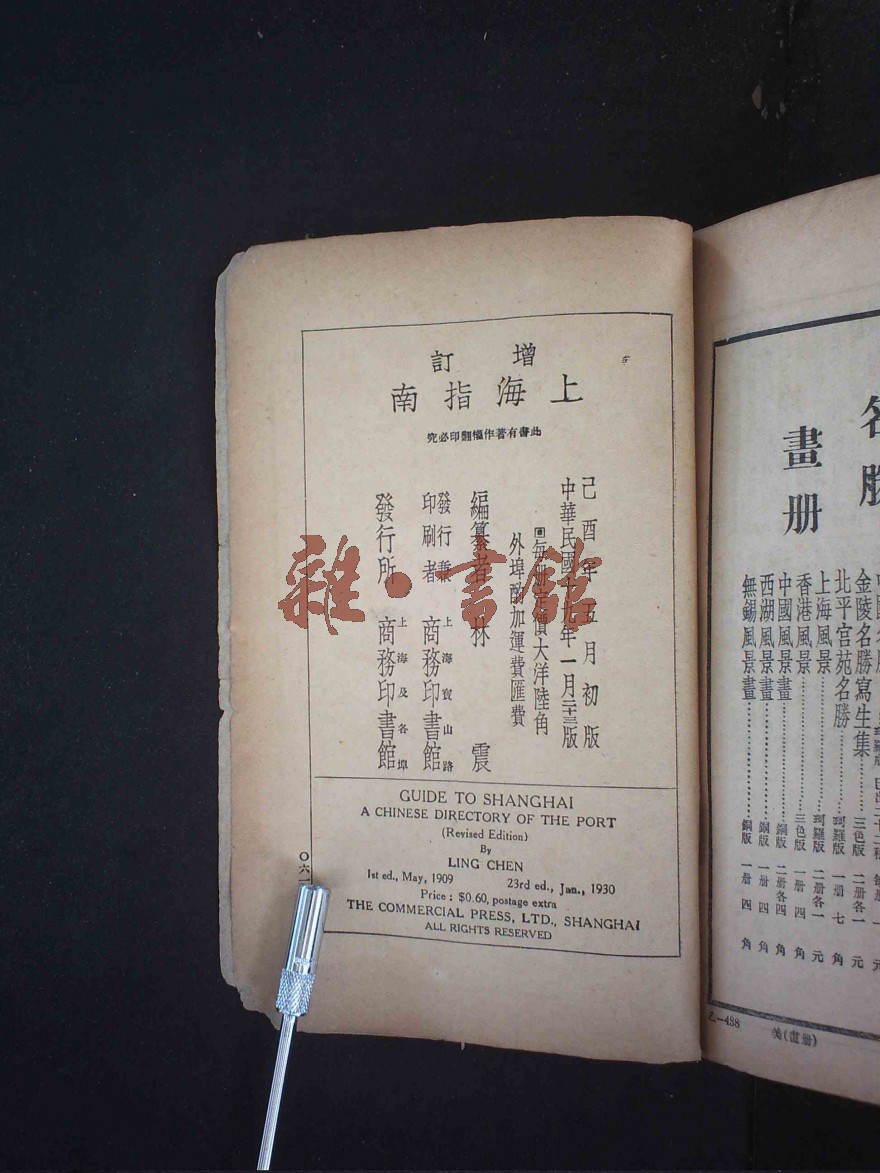 增訂
上海指南
此書有著作權翻印必究
己酉年五月初版
中華民國十九年一月二十三版
每册定價大洋陸角
外埠酌加運費匯費
編纂者 林震
發行兼印刷者 上海寶山路 商務印書館
發行所 上海及各埠 商務印書館
GUIDE TO SHANGHAI
A CHINESE DIRECTORY OF THE PORT
(Revised Edition)
By
LING CHEN
1st ed., May, 1909 23rd ed., Jan., 1930
Price : $0.60, postage extra
THE COMMERCIAL PRESS, LTD., SHANGHAI
ALL RIGHTS RESERVED
〇六一
雜·書館
名勝
畫册
金陵名勝寫生集 三色版 二册各一元
北平宮苑名勝 珂羅版 一册 七角
上海風景 珂羅版 二册各一元
香港風景 三色版 一册 四角
中國風景畫 銅版 二册各四角
西湖風景畫 銅版 一册 四角
無錫風景畫 銅版 一册 四角
美(畫册)